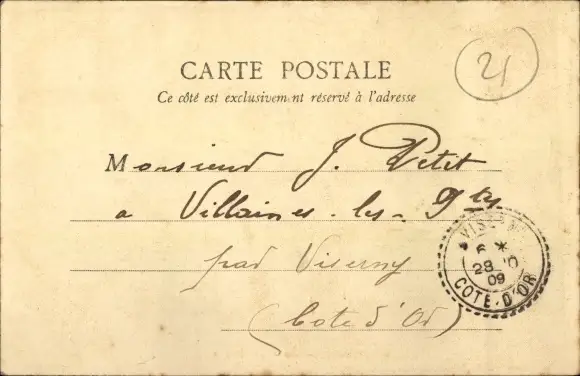 21
CARTE POSTALE
Ce côté est exclusivement réservé à l'adresse
Monsieur J. Petit
a Villaines-les-
par Viserny
(Cote d'Or)
6 *
28 10
09
COTE-D'OR